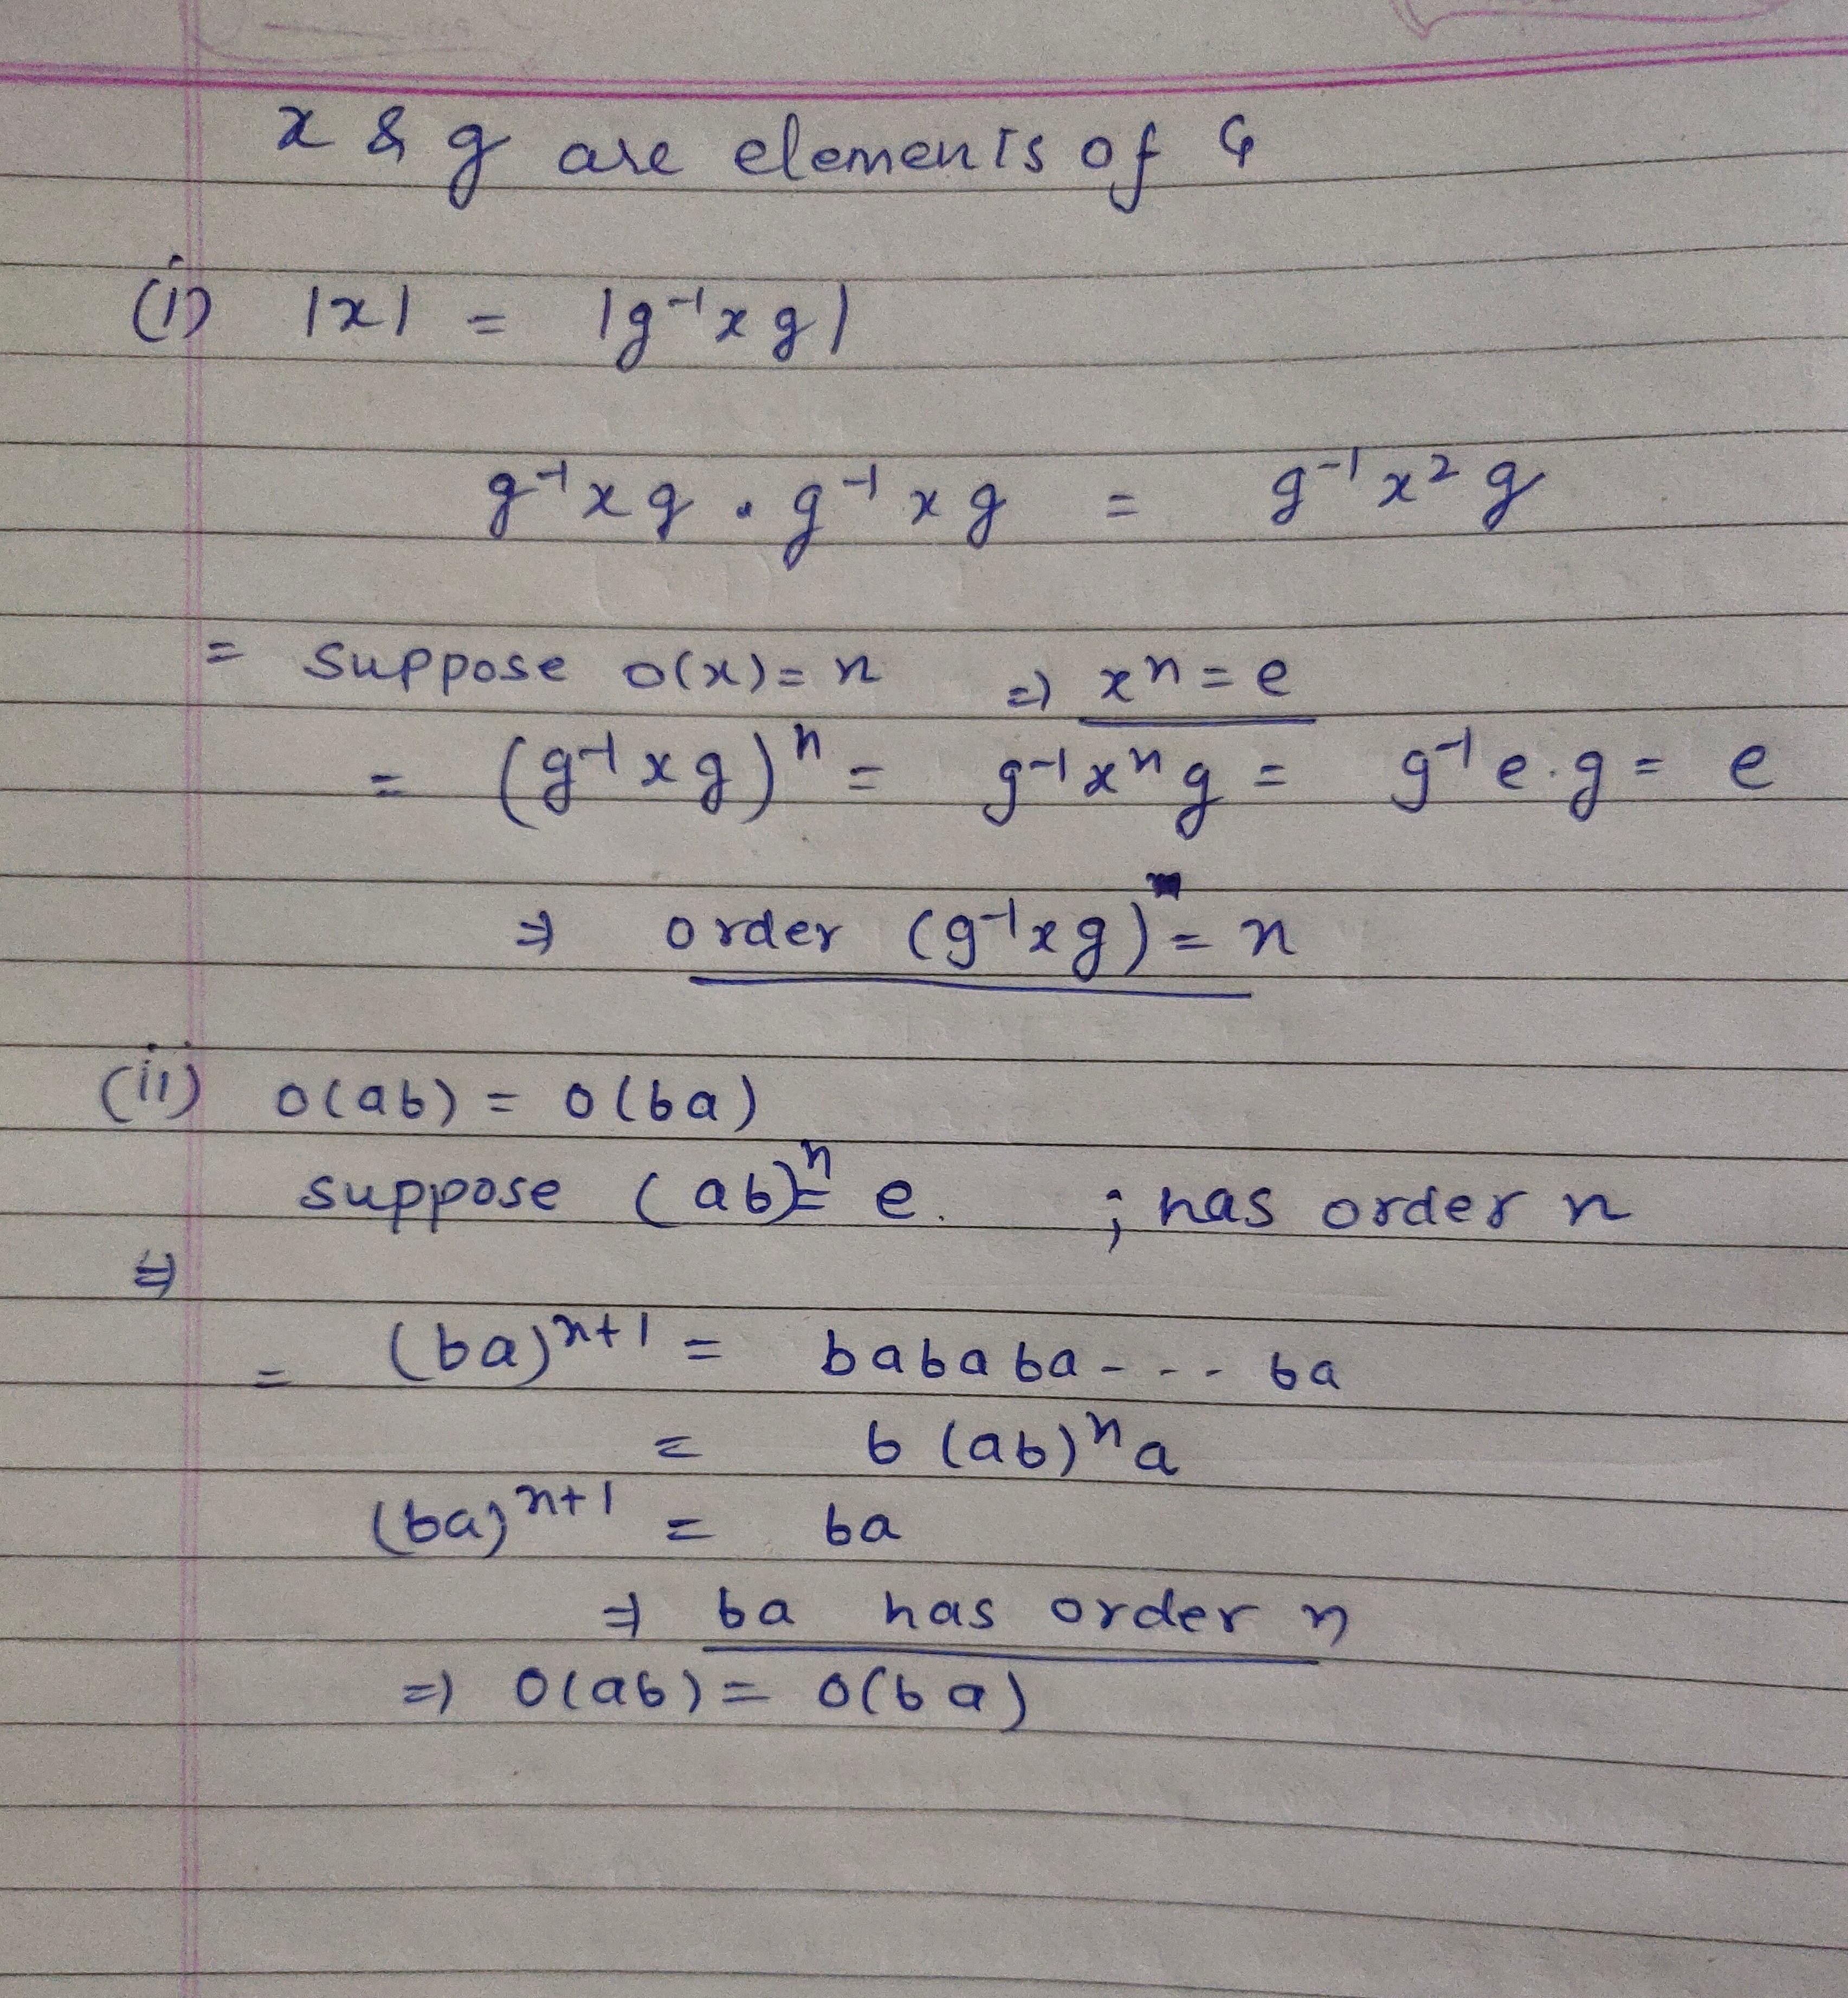 x & g are elements of G
(i) |x| = |g⁻¹xg|
g⁻¹xg . g⁻¹xg = g⁻¹x²g
= suppose o(x) = n ⇒ xⁿ = e
= (g⁻¹xg)ⁿ = g⁻¹xⁿg = g⁻¹e.g = e
⇒ order (g⁻¹xg) = n
(ii) o(ab) = o(ba)
suppose (ab)ⁿ = e. ; has order n
⇒
= (ba)ⁿ⁺¹ = bababa - - - ba
= b(ab)ⁿa
(ba)ⁿ⁺¹ = ba
⇒ ba has order n
⇒ o(ab) = o(ba)